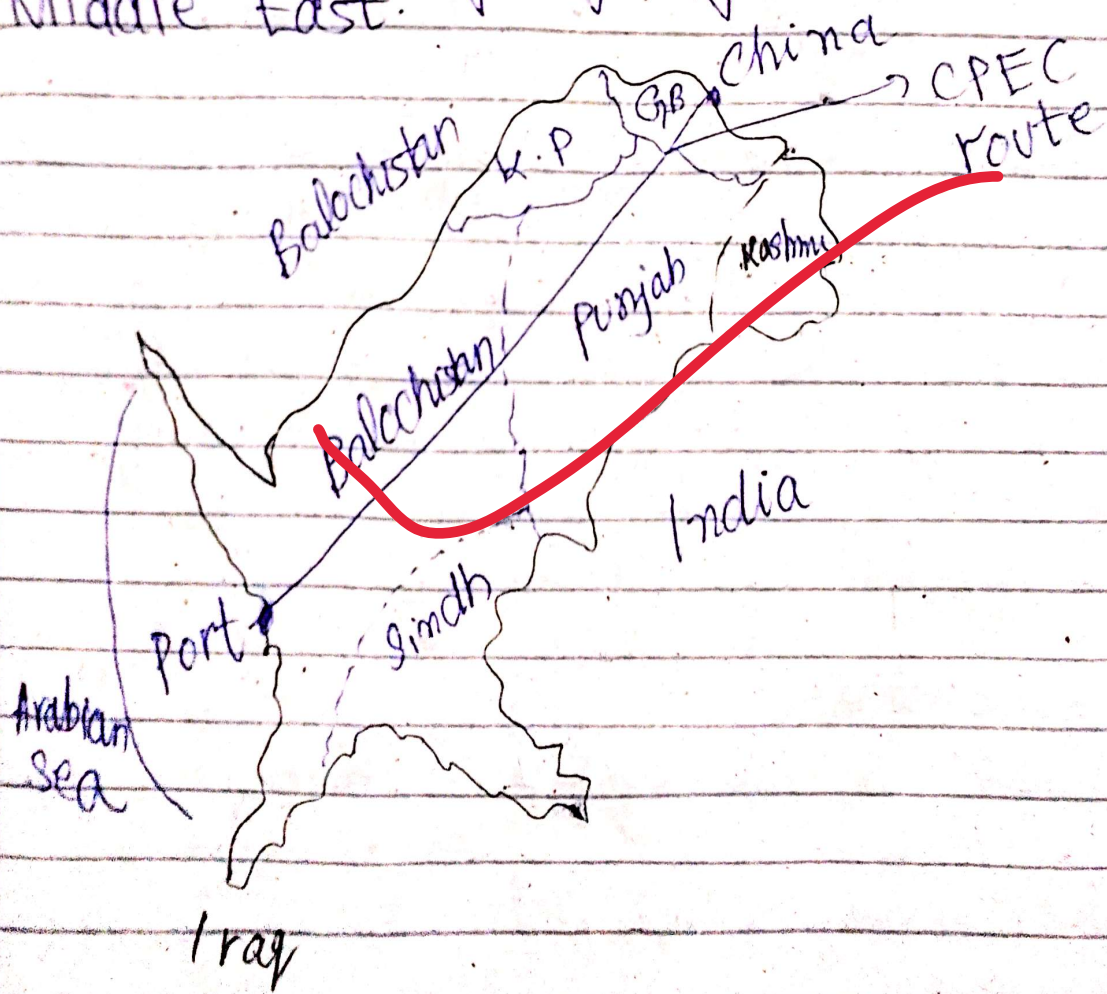 Middle East.
China
CPEC
route
GB
K.P
Balochistan
Kashmi
Punjab
Balochistan
India
Sindh
Port
Arabian
Sea
Iraq